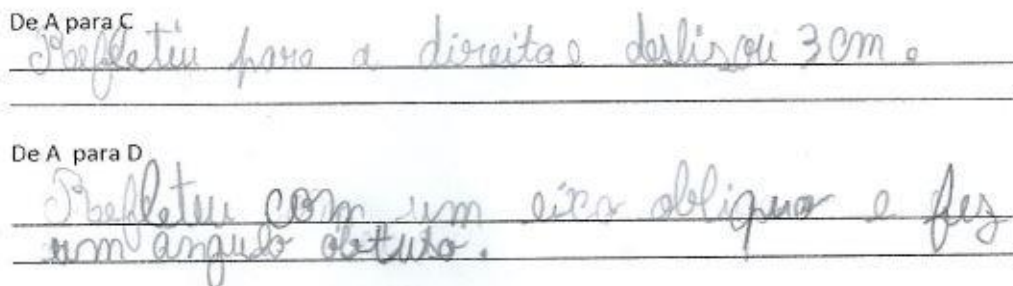 De A para C
Refletiu para a direita e deslisou 3 cm.
De A para D
Refletiu com um eixo obliquo e fez
um angulo obtuso.